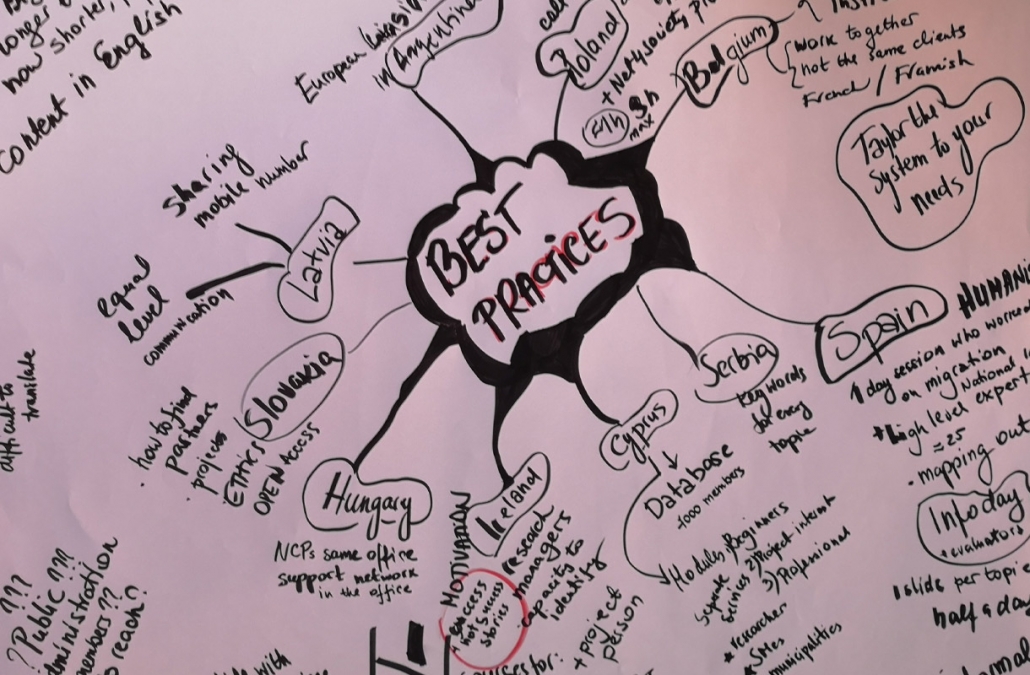 longer
now shorter,
content in English
European
in Argentina
call
Poland
+ Net4Society
F2h
3h
max
Belgium
work together
not the same clients
French / Flamish
Taylor the
system to your
needs
BEST
PRACTICES
sharing
mobile number
Latvia
equal
level
communication
Slovakia
· how to find
partners
· projects
ETHICS
OPEN ACCESS
difficult to
translate
Hungary
NCPs same office
support network
in the office
Ireland
MOTIVATION
not success
stories
research
managers
capacity to
identify
+ project
person
Cyprus
Database
1000 members
Modules
1) Beginners
2) Project interest
3) Professional
separate
* researcher
* SMEs
municipalities
Serbia
keywords
for every
topic
Spain
1 day session who worked
on migration
National
+ high level expert
= 25
· mapping out
Infoday
+ evaluators
1 slide per topic
half a day
???
?? Public ???
members ??
to reach?
with
for: